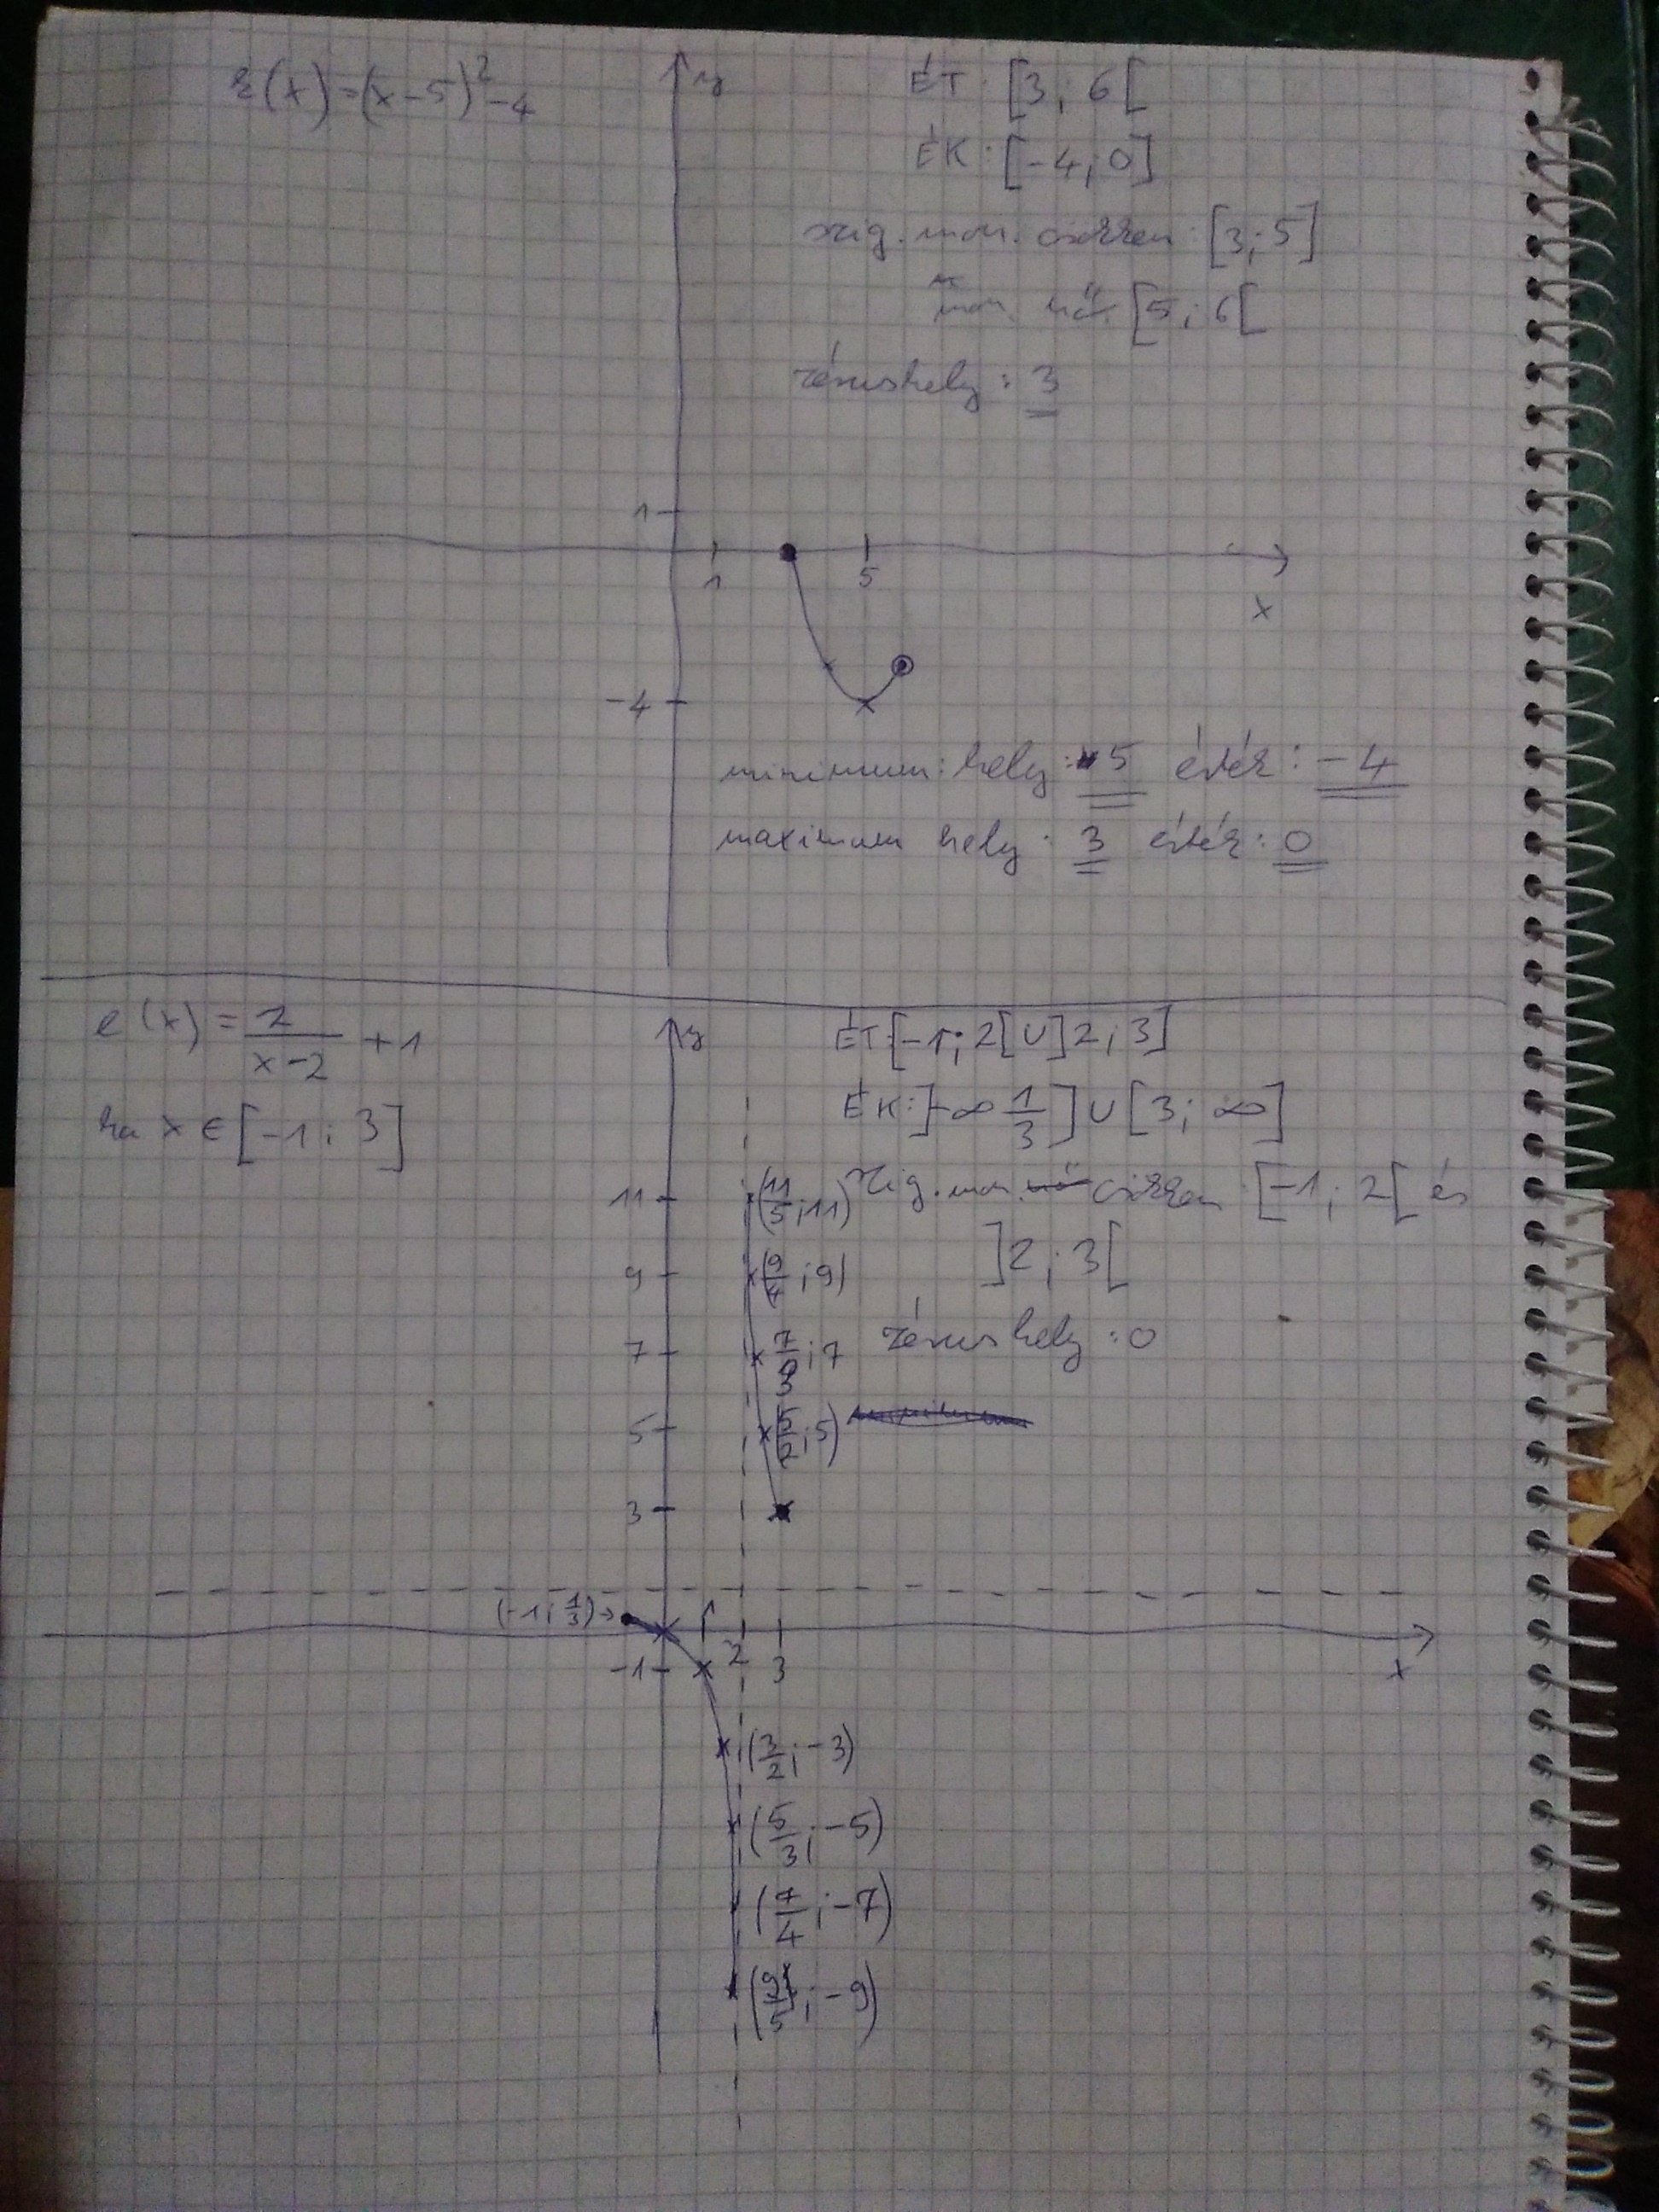 k(x)=(x-5)²-4
y
ÉT: [3; 6[
ÉK: [-4; 0]
szig. mon. csökken: [3; 5]
mon. nő: [5; 6[
zérushely: 3
1
1
5
x
-4
minimum: hely: 5 érték: -4
maximum hely: 3 érték: 0
e(x)=2/(x-2)+1
ha x∈[-1; 3]
y
ÉT: [-1; 2[ U ]2; 3]
ÉK: ]-∞ 1/3] U [3; ∞]
szig. mon. csökken: [-1; 2[ és
]2; 3[
zérushely: 0
11 (11/5; 11)
9 (9/4; 9)
7 7/3; 7
5 (5/2; 5)
3
(-1; 1/3)→
1
2
3
x
-1
(3/2; -3)
(5/3; -5)
(7/4; -7)
(9/5; -9)